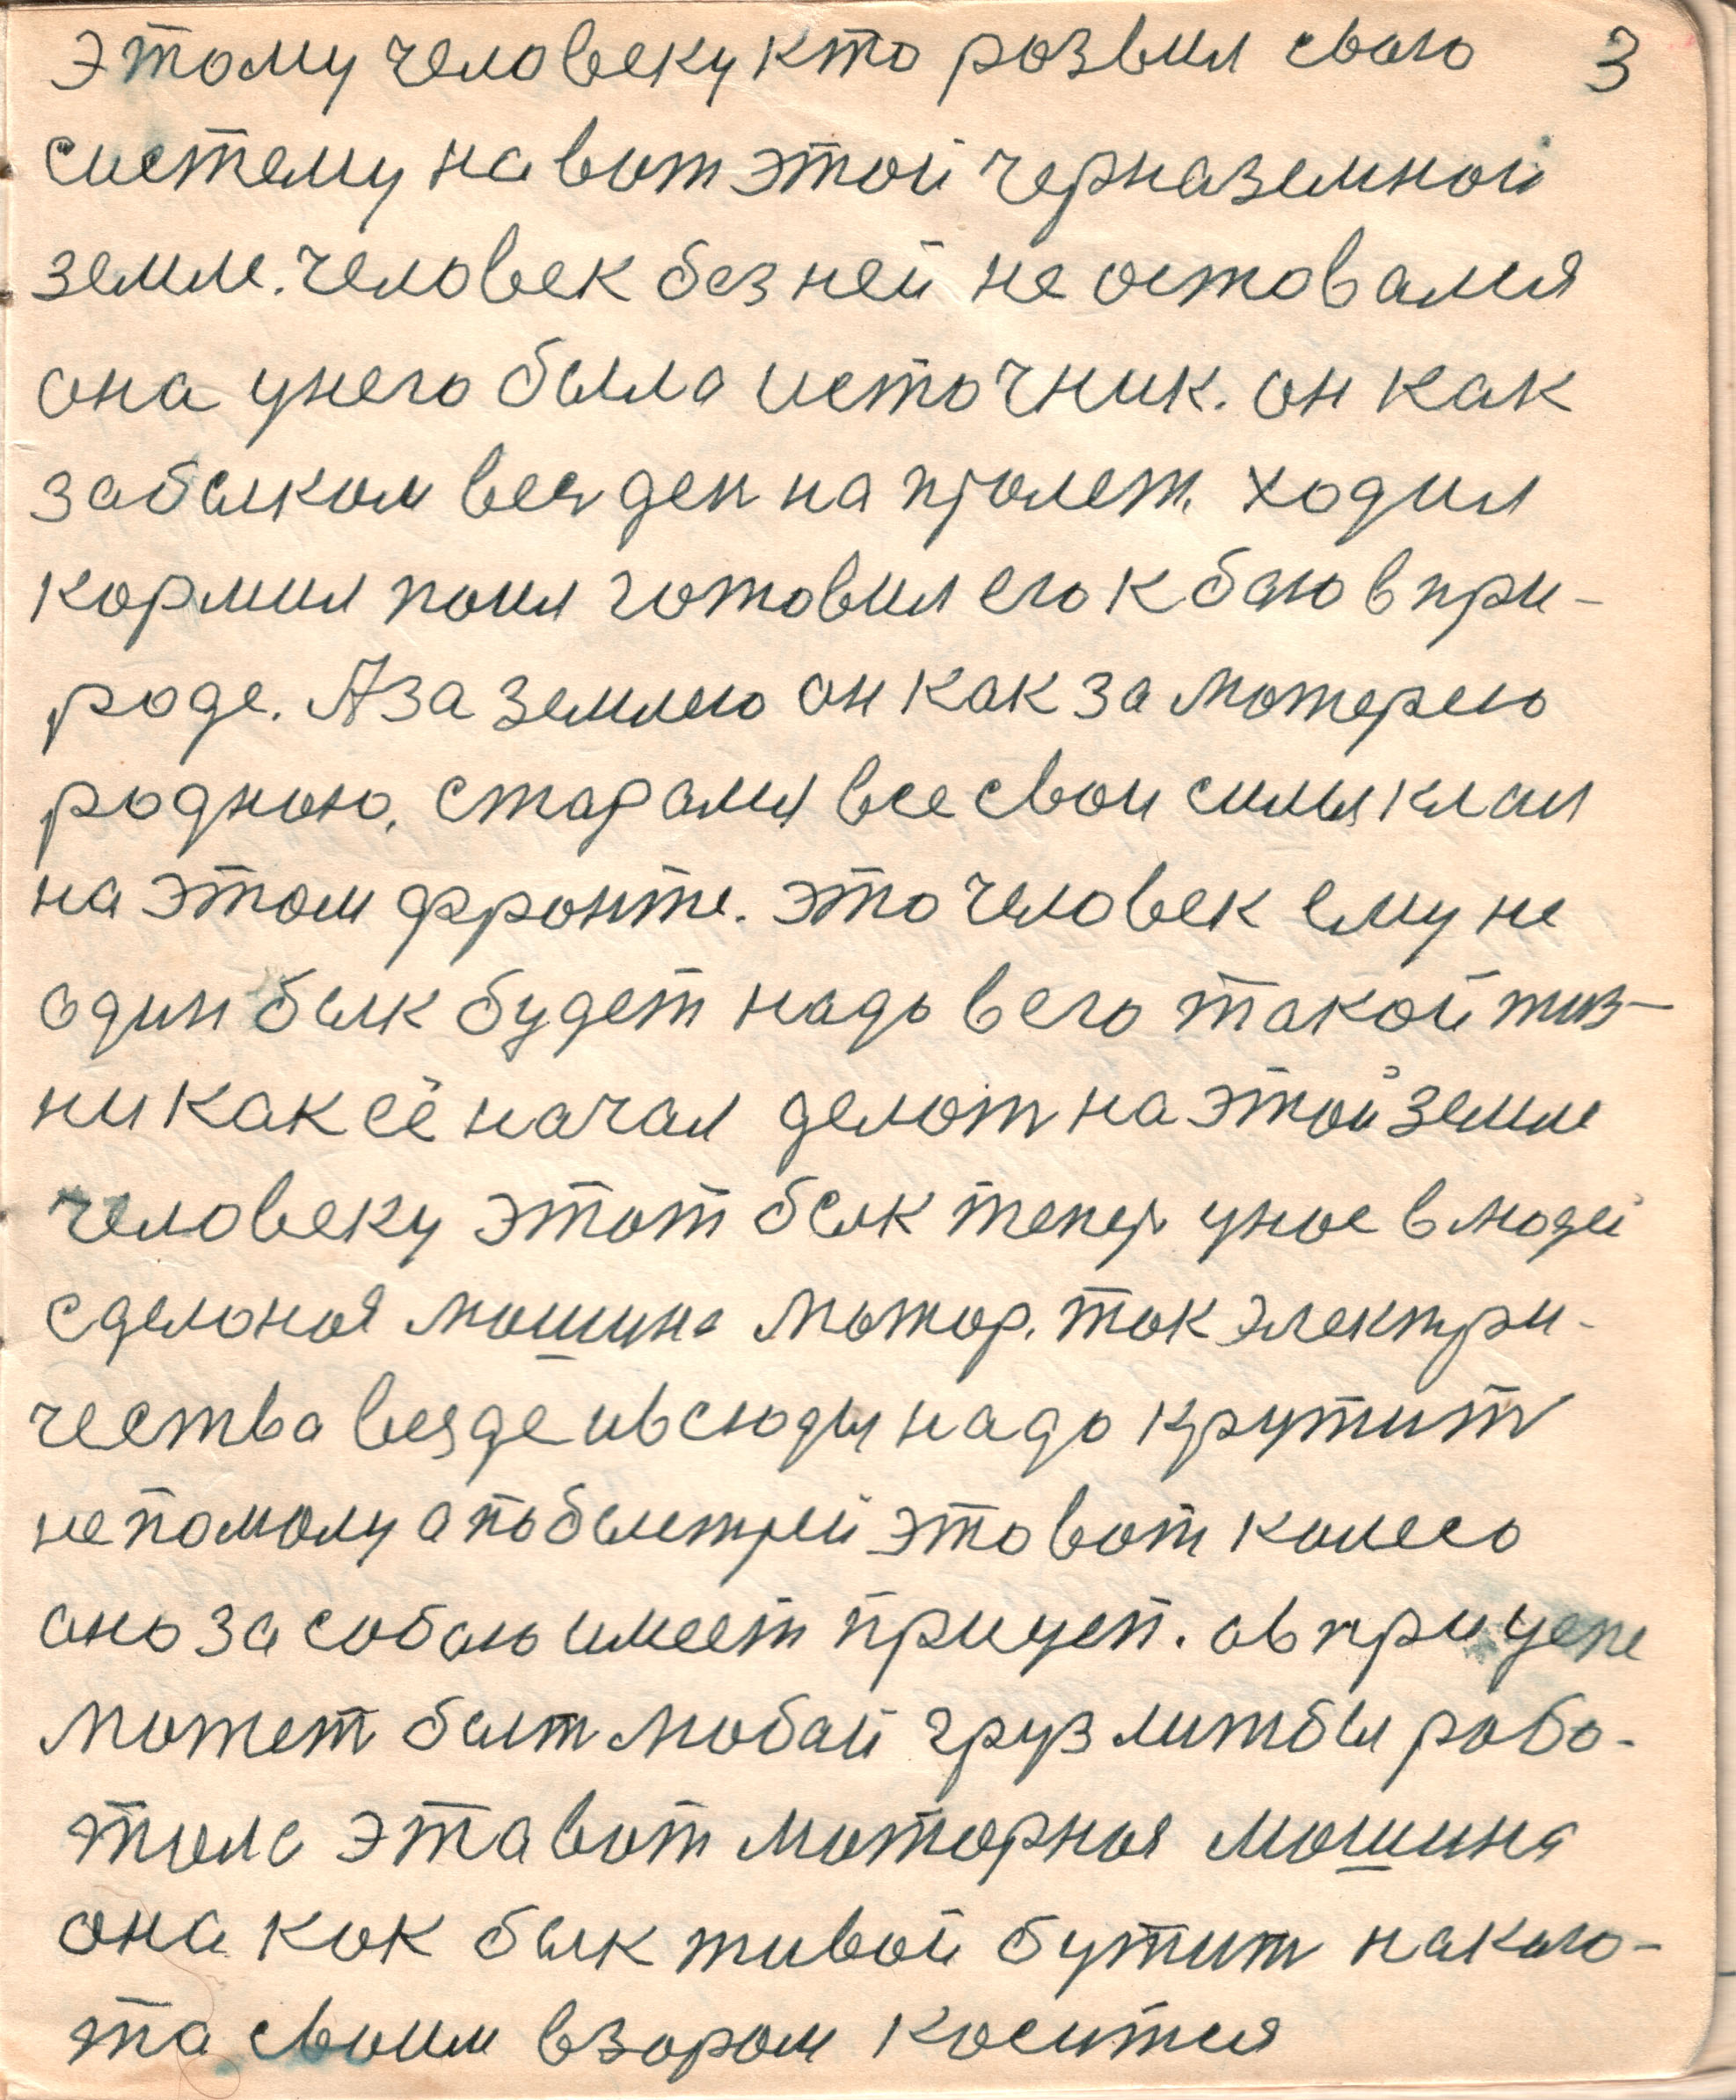 этому человеку кто розвил свою 3
систему на вот этой черназемной
земле. человек без ней не оставался
она унего была источник. он как
за быком весь ден на пролет. ходил
кормил поил готовил его к бою в при-
роде. А за землею он как за матерею
родною, старался все свои силы клал
на этом фронте. это человек ему не
один бык будет надо в его такой жиз-
ни как её начал делать на этой земле
человеку этот бык тепер унас в людей
сделоная машина мотор. ток электри-
чества везде ивсюды надо крутить
не помалу а побыстрей это вот колесо
оно за собою имеет прицеп. ов прицепе
может быт любой груз литбы рабо-
тала эта вот моторная машина
она как бык живой бутит накаго-
та своим взором косится